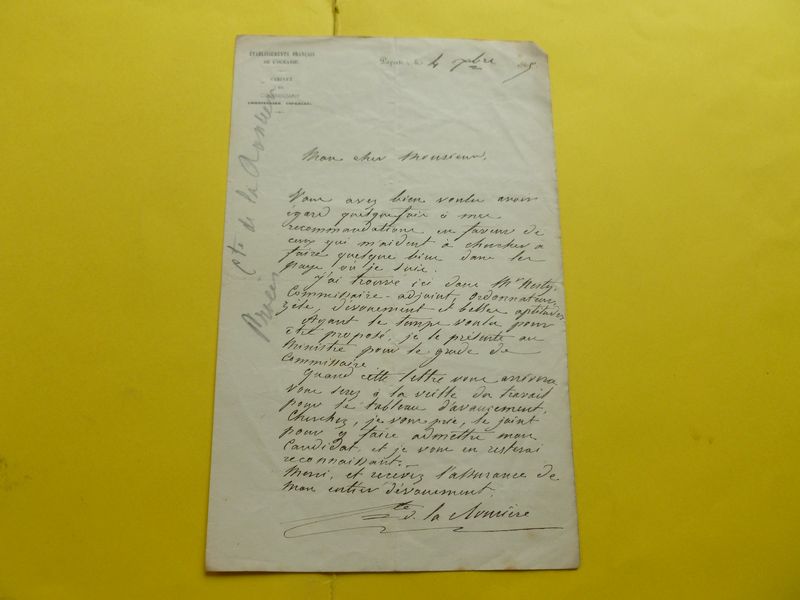 ÉTABLISSEMENTS FRANÇAIS
DE L'OCÉANIE
CABINET
DU
COMMISSAIRE IMPÉRIAL
Papeete, le 4 9bre 186
Cte de la Roncière
Mon cher Monsieur,
Vous avez bien voulu avoir
égard quelquefois à mes
recommandations en faveur de
ceux qui m'aident à chercher à
faire quelque bien dans les
pays où je suis.
J'ai trouvé ici dans Mr
Commissaire-adjoint, ordonnateur,
zèle, dévouement et belles aptitudes
Ayant le temps voulu pour
être proposé, je le présente au
Ministre pour le grade de
Commissaire.
Quand cette lettre vous arrivera
vous serez à la veille du travail
pour le tableau d'avancement.
Cherchez, je vous prie, le joint
pour y faire admettre mon
Candidat, et je vous en resterai
reconnaissant.
Merci, et recevez l'assurance de
mon entier dévouement.
Cte de la Roncière